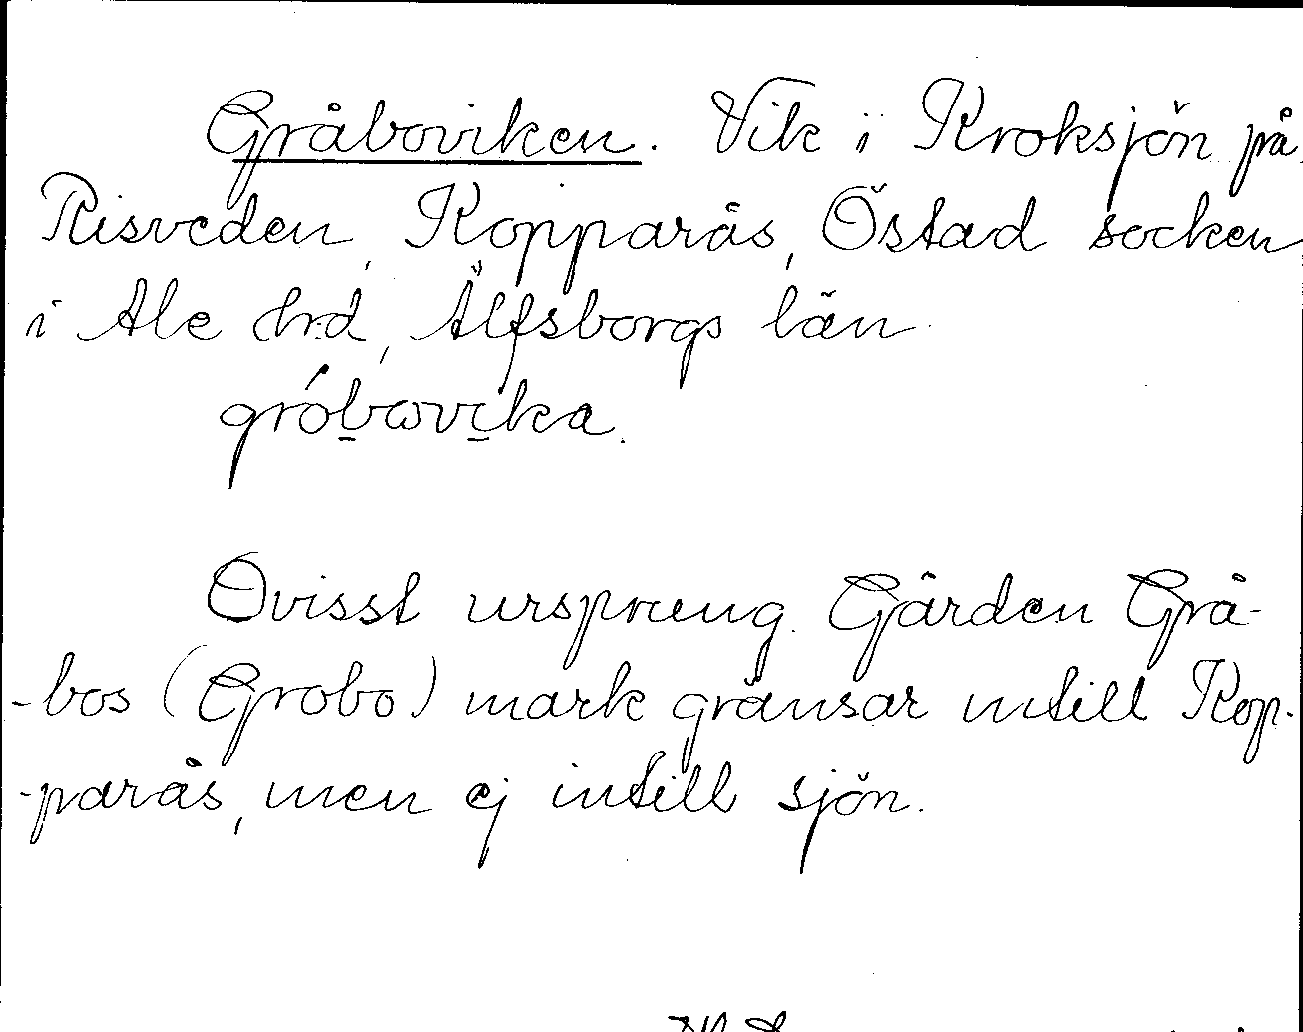 Gråboviken. Vik i Kroksjön på
Risveden, Kopparås, Östad socken
i Ale hrd, Älfsborgs län.
gróbωvika.
Ovisst ursprung. Gården Grå-
-bos (Grobo) mark gränsar intill Kop-
-parås, men ej intill sjön.